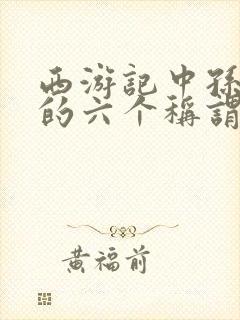 西游記中孫
的六个稱謂
黄福前